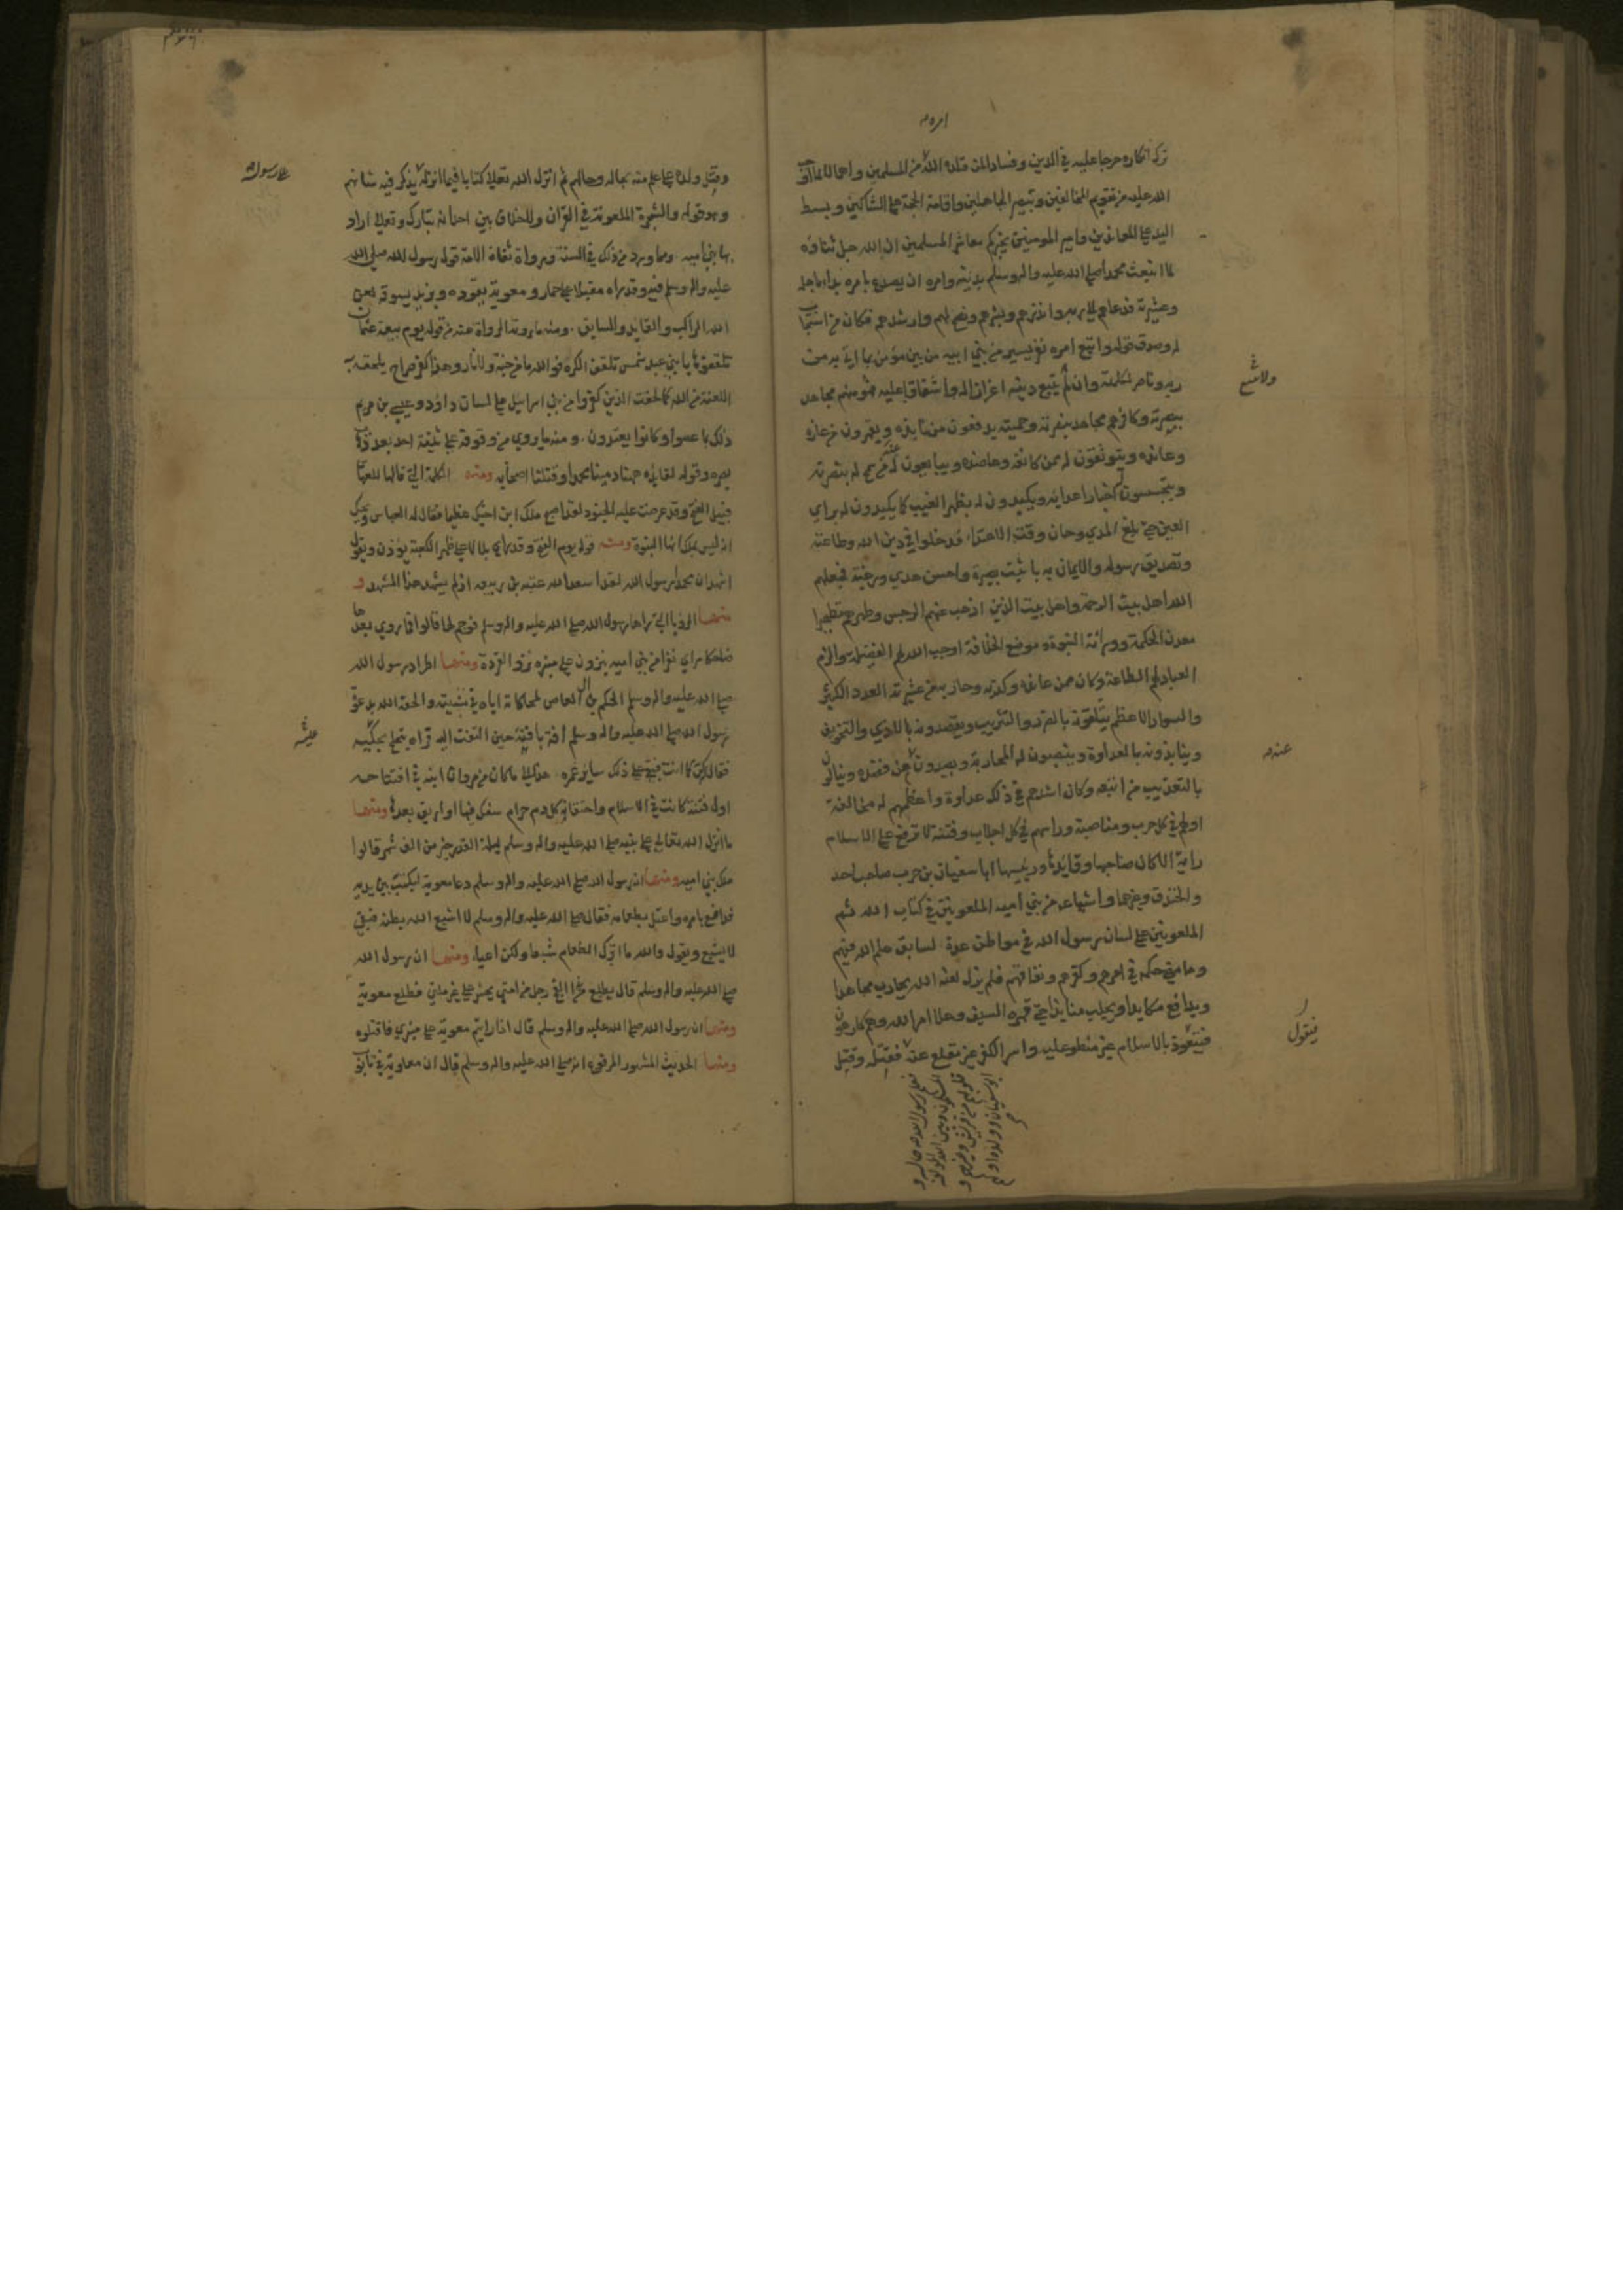 ترك انكاره حرجا عليه في الدين وفسادا لمن قلده الله امر المسلمين واهمالا لما اوجبه
الله عليه من تقويم المخالفين وتبصير الجاهلين واقامة الحجة على الشاكين وبسط
اليد على المعاندين وامير المومنين يخبركم معاشر المسلمين ان الله جل ثناؤه
لما ابتعث محمدا صلى الله عليه واله وسلم بدينه وامره ان يصدع بامره بدا باهله
وعشيرته فدعاهم الى ربه وانذرهم وبشرهم ونصح لهم وارشدهم فكان من استجاب
له وصدق قوله واتبع امره نفر يسير من بني ابيه من بين مؤمن بما اتى به من
ربه وناصر لكلمته وان لم يتبع دينه اعزازا له واشفاقا عليه فمؤمنهم مجاهد
ببصيرته وكافرهم مجاهد بنصرته وحميته يدفعون من نابذه ويقهرون من عازه
وعانده ويتوثقون له ممن كانفه وعاضده ويبايعون له من سمح له بنصرته
ويتجسسون اخبار اعدائه ويكيدون له بظهر الغيب كما يكيدون له براي
العين حتى بلغ المدى وحان وقت الاهتداء فدخلوا في دين الله وطاعته
وتصديق رسوله والايمان به باثبت بصيرة واحسن هدى ورغبة فجعلهم
الله اهل بيت الرحمة واهل بيت الذين اذهب عنهم الرجس وطهرهم تطهيرا
معدن الحكمة وورثة النبوة وموضع الخلافة اوجب الله لهم الفضيلة والزم
العباد لهم الطاعة وكان ممن عانده وكذبه وحاربه من عشيرته العدد الكثير
والسواد الاعظم يتلقونه بالضرر والتثريب ويقصدونه بالاذى والتخويف
وينابذونه بالعداوة وينصبون له المحاربة ويصدون من قصده وينالون
بالتعذيب من اتبعه وكان اشدهم في ذلك عداوة واعظمهم له مخالفة
اولهم في كل حرب ومناصبة وراسهم في كل اجلاب وفتنة لا ترفع على الاسلام
راية الا كان صاحبها وقائدها ورئيسها ابا سفيان بن حرب صاحب احد
والخندق وغيرهما واشياعه من بني اميه الملعونين في كتاب الله ثم
الملعونين على لسان رسول الله في مواطن عدة لسابق علم الله فيهم
وماضي حكمه في امرهم وكفرهم ونفاقهم فلم يزل لعنه الله يحارب مجاهدا
ويدافع مكايدا ويجلب منابذا حتى قهره السيف وعلا امر الله وهم كارهون
فتعوذ بالاسلام غير منطو عليه واسر الكفر غير مقلع عنه فقبله وقبل
امره
ولا متبع
عنده
فيقول
وقبل ولده على علم منه بحاله وحالهم ثم انزل الله تعالى كتابا فيما انزله يذكر فيه شانهم
وهو قوله والشجرة الملعونة في القران ولا خلاف بين احد انه تبارك وتعالى اراد
بها بني اميه ومما ورد من ذلك في السنة ورواه ثقاة الامة قول رسول الله صلى الله
عليه واله وسلم فيه وقد راه مقبلا على حمار ومعوية يقوده ويزيد يسوقه لعن
الله الراكب والقايد والسايق ومنه ما روته الرواة عنه من قوله يوم بيعة عثمان
تلقفوها يا بني عبد شمس تلقف الكره فوالله ما من جنة ولا نار وهذا كفر صراح يلحقه به
اللعنة من الله كما لحقت الذين كفروا من بني اسرائيل على لسان داود وعيسى بن مريم
ذلك بما عصوا وكانوا يعتدون ومنه ما يروى من وقوفه على ثنية احد بعد ذهاب
بصره وقوله لقايده ههنا رمينا محمدا وقتلنا اصحابه ومنه الكلمة التي قالها للعباس
قبيل الفتح وقد عرضت عليه الجنود لقد اصبح ملك ابن اخيك عظيما فقال له العباس ويحك
انه ليس بملك انها النبوة ومنه قوله يوم الفتح وقد راى بلالا على ظهر الكعبة يؤذن ويقول
اشهد ان محمدا رسول الله لقد اسعد الله عتبه بن ربيعه اذ لم يشهد هذا المشهد و
منها الرؤيا التي راها رسول الله صلى الله عليه واله وسلم فوجم لها قالوا فما روي بعدها
ضاحكا راى نفرا من بني اميه ينزون على منبره نزو القردة ومنها اطراد رسول الله
صلى الله عليه واله وسلم الحكم بن ابي العاص لمحاكاته اياه في مشيته والحقه الله بدعوة
رسول الله صلى الله عليه واله وسلم افة باقية حين التفت اليه فراه يتخلج يحكيه
فقال كن كما انت فبقي على ذلك ساير عمره هذا الى ما كان من مروان ابنه في افتتاحه
اول فتنة كانت في الاسلام واحتقابه كل دم حرام سفك فيها او اريق بعدها ومنها
ما انزل الله تعالى على نبيه صلى الله عليه واله وسلم ليلة القدر خير من الف شهر قالوا
ملك بني اميه ومنها ان رسول الله صلى الله عليه واله وسلم دعا معوية ليكتب بين يديه
فدافع بامره واعتل بطعامه فقال صلى الله عليه واله وسلم لا اشبع الله بطنه فبقي
لا يشبع ويقول والله ما اترك الطعام شبعا ولكن اعياء ومنها ان رسول الله
صلى الله عليه واله وسلم قال يطلع من هذا الفج رجل من امتي يحشر على غير ملتي فطلع معوية
ومنها ان رسول الله صلى الله عليه واله وسلم قال اذا رايتم معوية على منبري فاقتلوه
ومنها الحديث المشهور المرفوع انه صلى الله عليه واله وسلم قال ان معاوية في تابوت